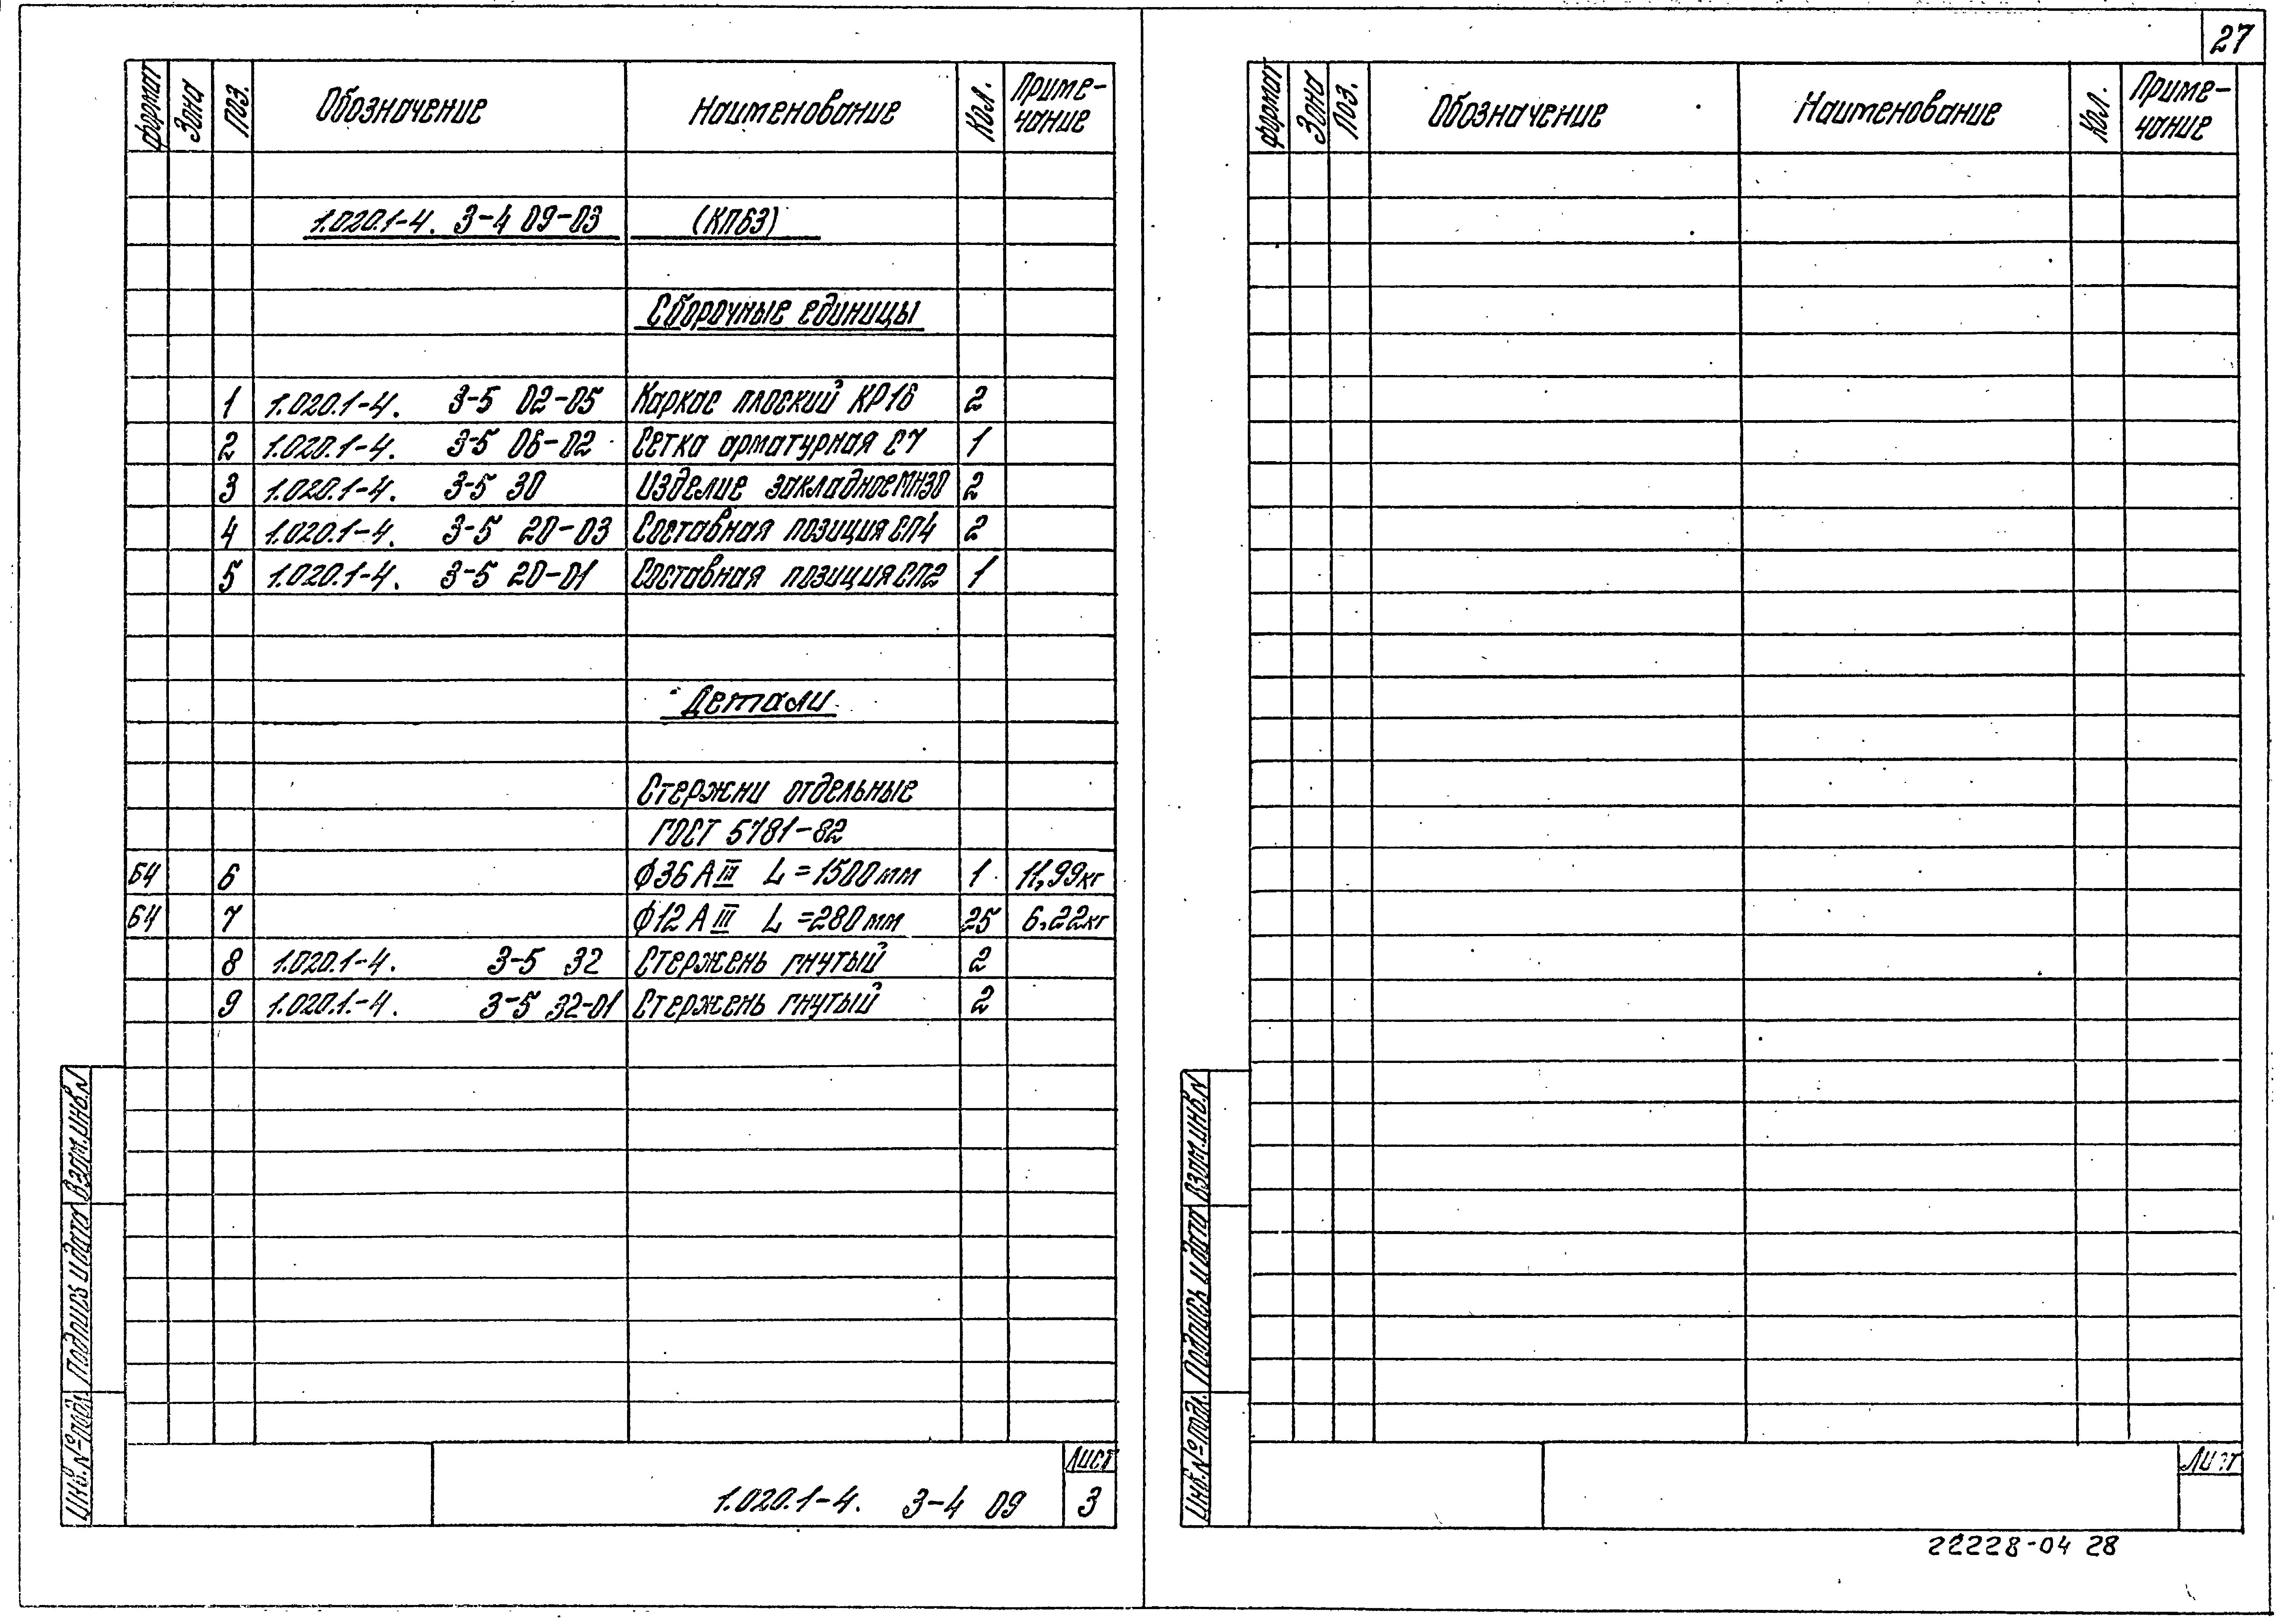 27
формат Зона Поз. Обозначение Наименование Кол. Приме-
чание
1.020.1-4. 3-4 09-03 (КП63)
Сборочные единицы
1 1.020.1-4. 3-5 02-05 Каркас плоский КР16 2
2 1.020.1-4. 3-5 06-02 Сетка арматурная С7 1
3 1.020.1-4. 3-5 30 Изделие закладное МН30 2
4 1.020.1-4. 3-5 20-03 Составная позиция СП4 2
5 1.020.1-4. 3-5 20-01 Составная позиция СП2 1
Детали
Стержни отдельные
ГОСТ 5781-82
БЧ 6 ϕ36 АIII L=1500мм 1 11,99кг
БЧ 7 ϕ12 АIII L=280мм 25 6,22кг
8 1.020.1-4. 3-5 32 Стержень гнутый 2
9 1.020.1.-4. 3-5 32-01 Стержень гнутый 2
Инв.№подл. Подпись и дата Взам.инв.№
1.020.1-4. 3-4 09
Лист
3
формат Зона Поз. Обозначение Наименование Кол. Приме-
чание
Инв.№подл. Подпись и дата Взам.инв.№
Лист
22228-04 28